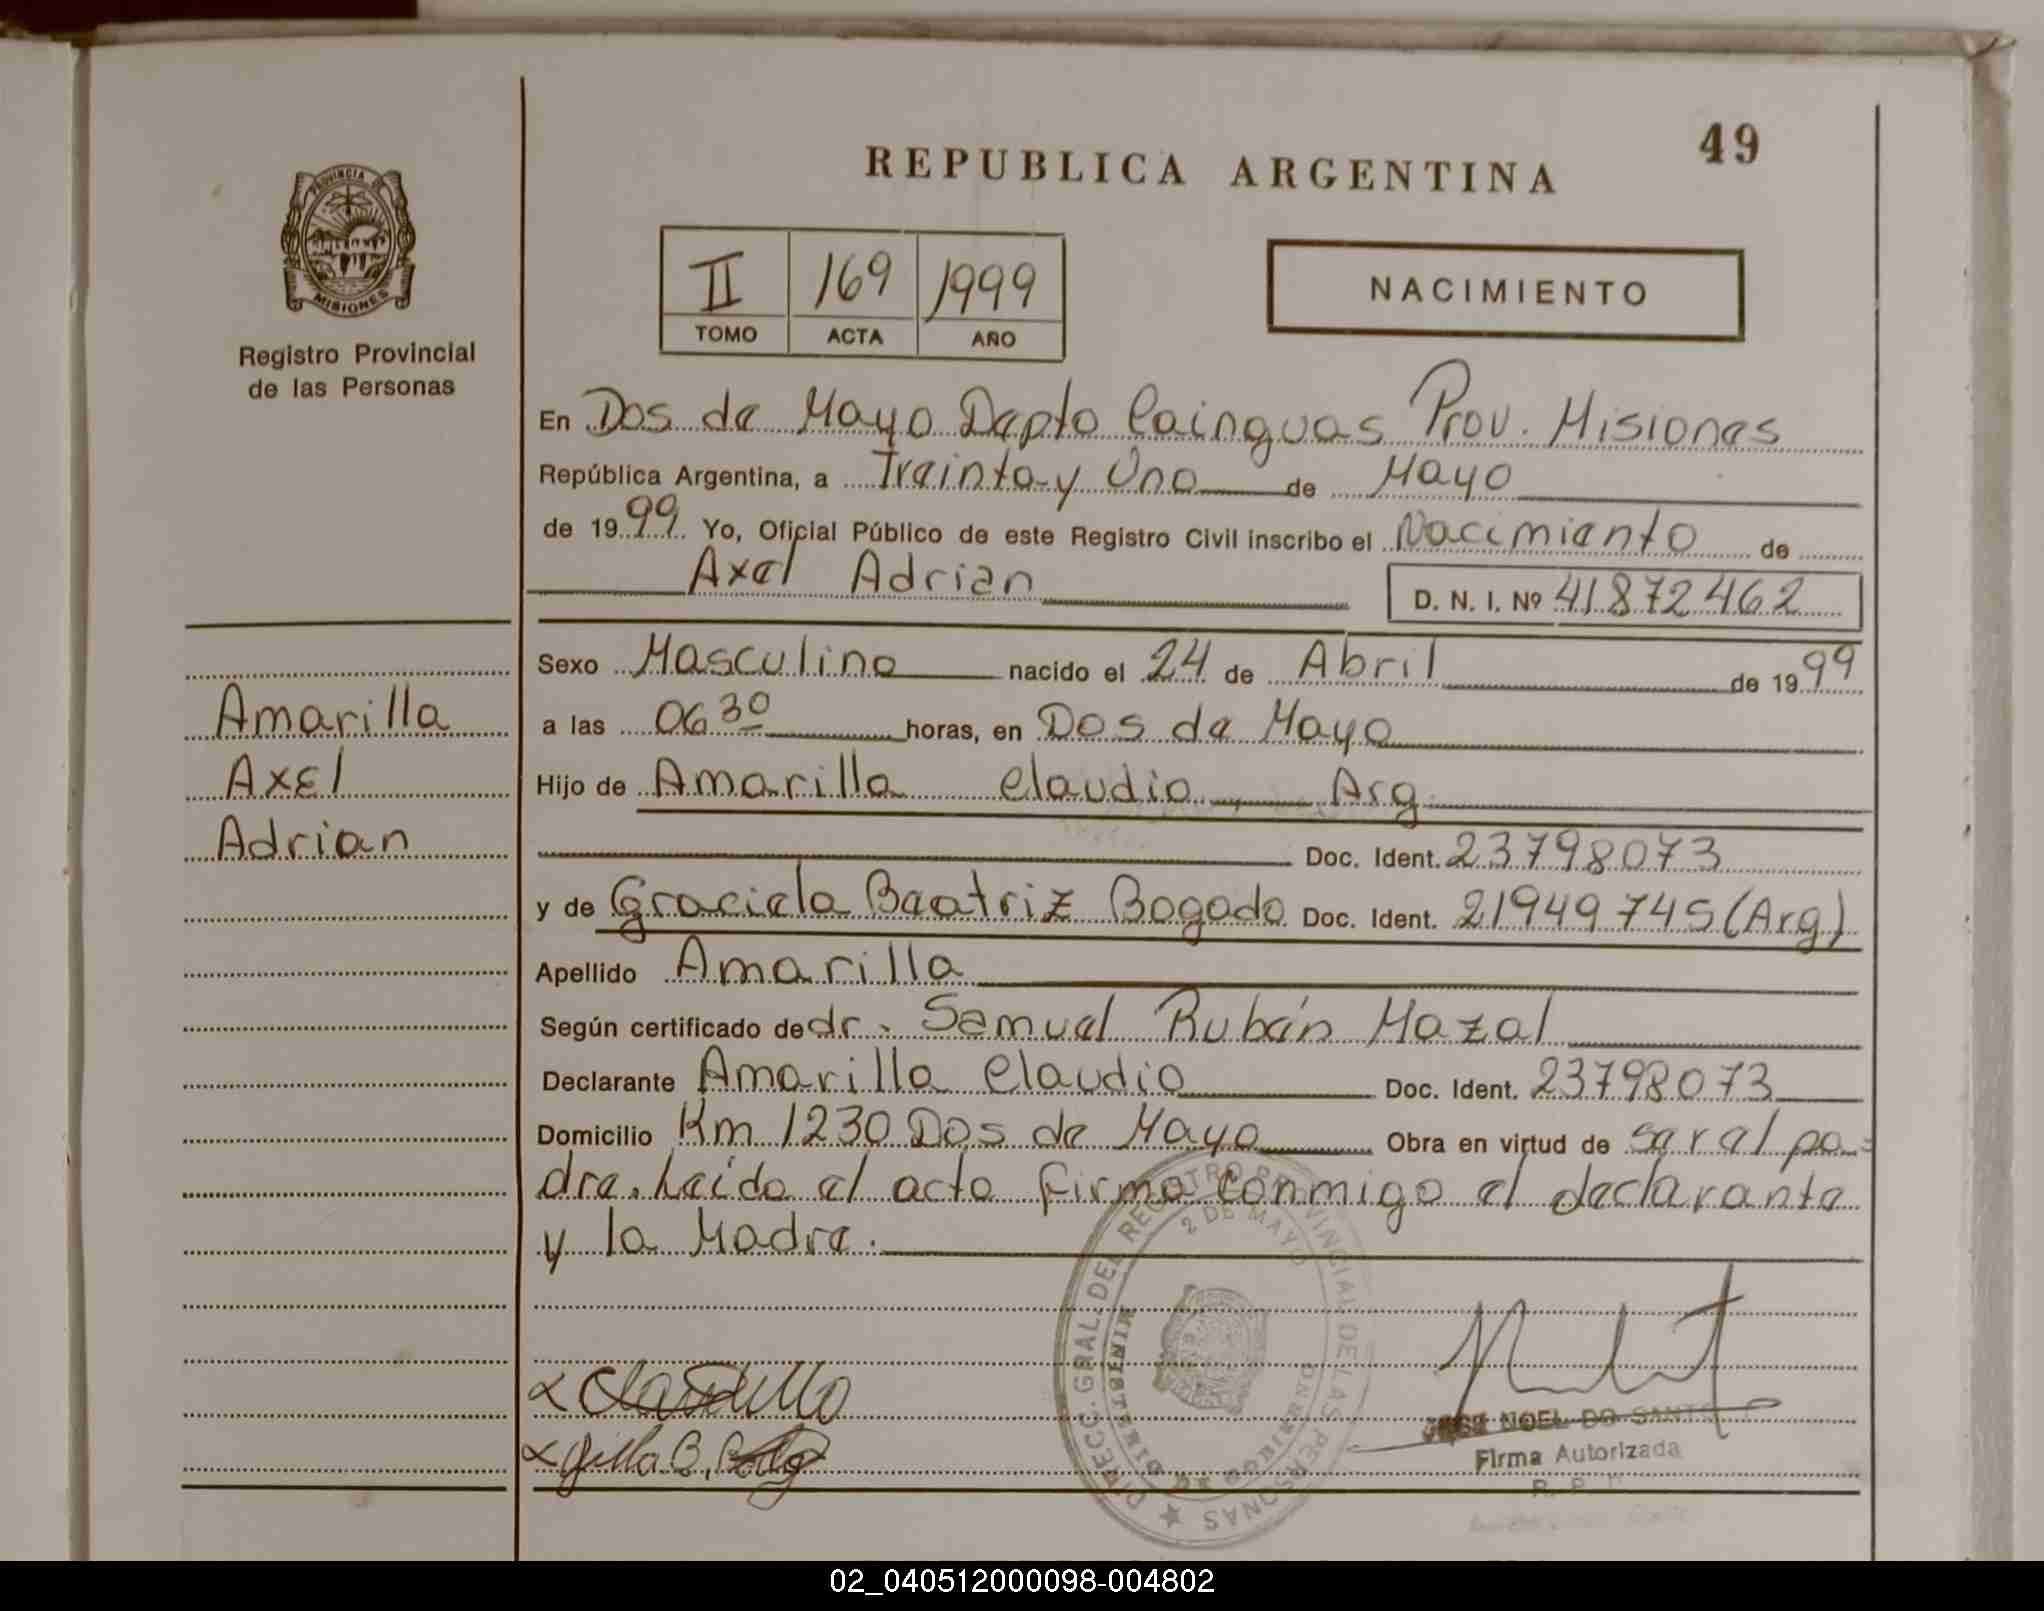 49
REPUBLICA ARGENTINA
PROVINCIA DE
MISIONES
Registro Provincial
de las Personas
II 169 1999
TOMO ACTA AÑO
NACIMIENTO
En Dos de Mayo Depto Cainguas Prov. Misiones
República Argentina, a Treinta y Uno de Mayo
de 1999 Yo, Oficial Público de este Registro Civil inscribo el Nacimiento de
Axel Adrian D. N. I. Nº 41872462
Sexo Masculino nacido el 24 de Abril de 1999
Amarilla
a las 06 30 horas, en Dos de Mayo
Axel
Hijo de Amarilla Claudio Arg
Adrian
Doc. Ident. 23798073
y de Graciela Beatriz Bogado Doc. Ident. 21949745 (Arg)
Apellido Amarilla
Según certificado de dr. Samuel Rubén Mazal
Declarante Amarilla Claudio Doc. Ident. 23798073
Domicilio Km 1230 Dos de Mayo Obra en virtud de ser el pa=
dre. Leido el acta firma conmigo el declarante
y la Madre.
DIRECC. GRAL. DEL REGISTRO PROVINCIAL DE LAS PERSONAS
2 DE MAYO
MINISTERIO DE GOBIERNO
NOEL DO SANTO
Firma Autorizada
02_040512000098-004802